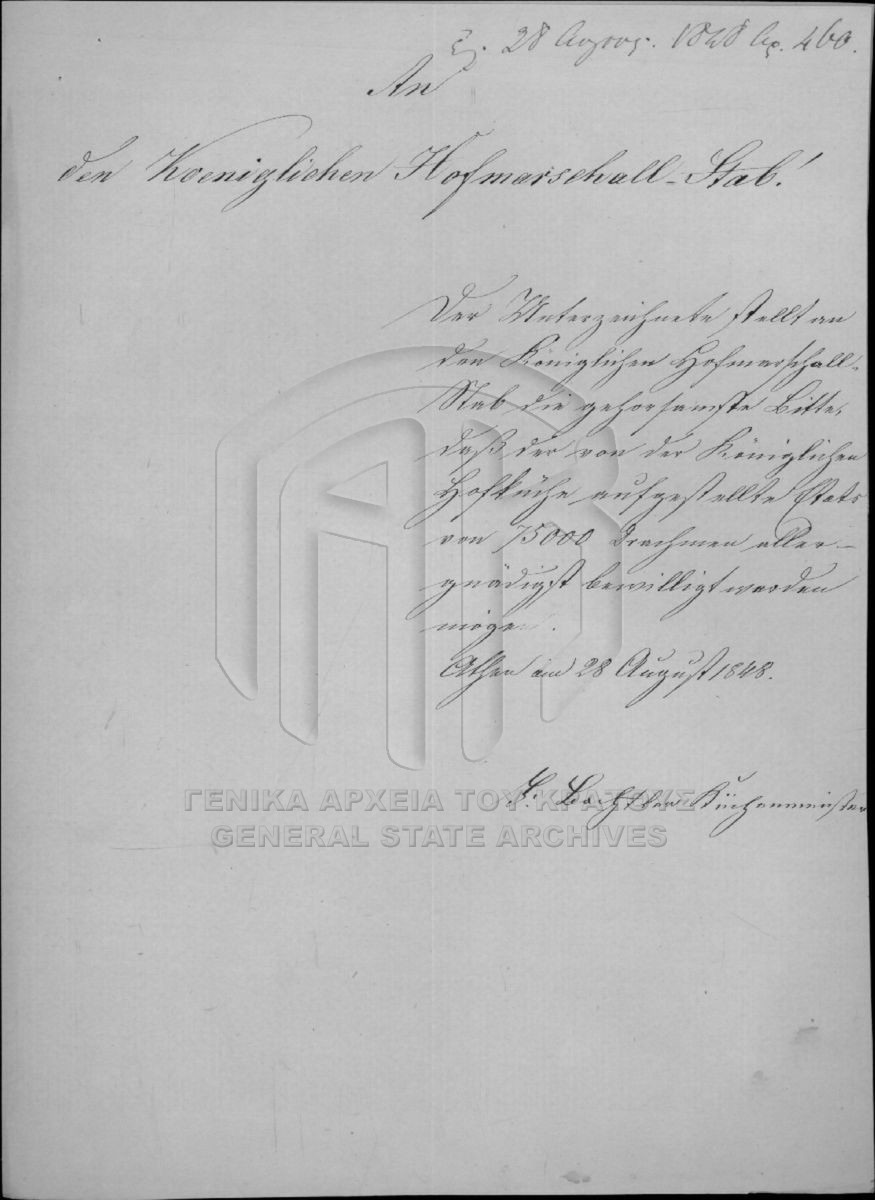 28 Αυγούς. 1848 Αρ. 460.
An
den Koeniglichen Hofmarschall-Stab!
Der Unterzeichnete stellt an
den Königlichen Hofmarschall-
Stab die gehorsamste Bitte,
daß der von der Königlichen
Hofküche aufgestellte Etats
von 75000 Drachmen aller-
gnädigst bewilligt werden
möge.
Athen am 28 August 1848.
Küchenmeister
ΓΕΝΙΚΑ ΑΡΧΕΙΑ ΤΟΥ ΚΡΑΤΟΥΣ
GENERAL STATE ARCHIVES